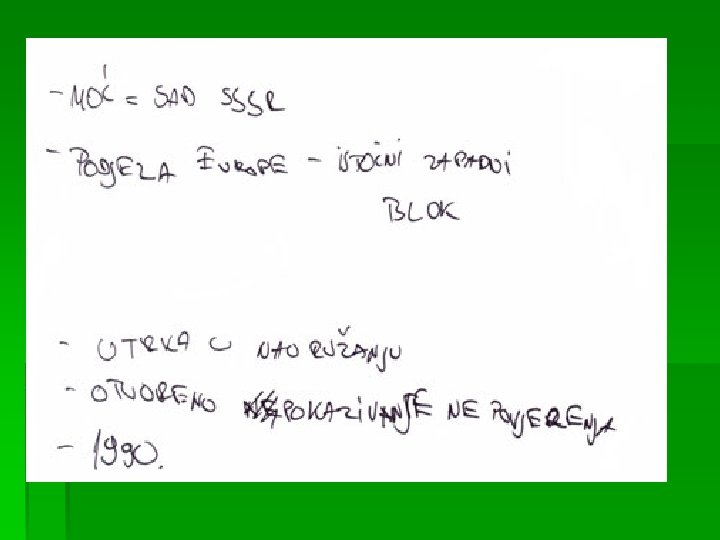 - MOĆ = SAD SSSR
- PODJELA EUROPE - ISTOČNI ZAPADNI
BLOK
- UTRKA U NAORUŽANJU
- OTVORENO POKAZIVANJE NE POVJERENJA
- 1990.